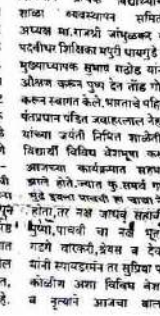 शाळा व्यवस्थापन समिती
अध्यक्ष मा.राजश्री जांभुळकर
पदवीधर शिक्षिका मयुरी घायगुडे
मुख्याध्यापक सुभाष राठोड यां
औक्षण करून पुष्प देत तोंड गो
करून स्वागत केले.भारताचे पहि
पंतप्रधान पंडित जवाहरलाल नेह
यांच्या जयंती निमित्त शाळेती
विद्यार्थी विविध वेशभूषा क
आजच्या कार्यक्रमात सहभ
झाले होते.ज्यात कु.समर्थ
मुंढे इयत्ता पाचवी हा चाचा
होता,तर नक्ष जाधव सहावी
गुप्ता,पाचवी चा नक्ष भूत
गाटगे वारकरी,श्रेयस व देव
यांनी स्पायडरमॅन तर सुप्रिया
कोळीण अशा विविध वेश
व नृत्याने आजचा बाल